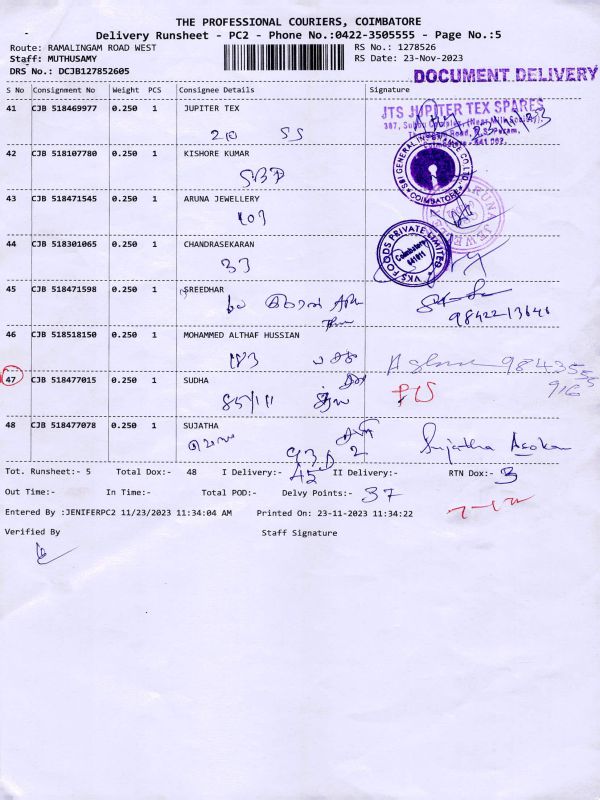 THE PROFESSIONAL COURIERS, COIMBATORE
Delivery Runsheet - PC2 - Phone No.:0422-3505555 - Page No.:5
Route: RAMALINGAM ROAD WEST
RS No.: 1278526
Staff: MUTHUSAMY
RS Date: 23-Nov-2023
DRS No.: DCJB127852605
DOCUMENT DELIVERY
S No Consignment No Weight PCS Consignee Details Signature
41 CJB 518469977 0.250 1 JUPITER TEX
210 SS
JTS JUPITER TEX SPARES
42 CJB 518107780 0.250 1 KISHORE KUMAR
SBI GENERAL INSURANCE CO.LTD. COIMBATORE
43 CJB 518471545 0.250 1 ARUNA JEWELLERY
107
44 CJB 518301065 0.250 1 CHANDRASEKARAN
33
VKS FOODS PRIVATE LIMITED
Coimbatore
641011
45 CJB 518471598 0.250 1 SREEDHAR
9842213646
46 CJB 518518150 0.250 1 MOHAMMED ALTHAF HUSSIAN
47 CJB 518477015 0.250 1 SUDHA
85/111
48 CJB 518477078 0.250 1 SUJATHA
Sujatha Asokan
Tot. Runsheet:- 5 Total Dox:- 48 I Delivery:- 45 II Delivery:- RTN Dox:- 3
Out Time:- In Time:- Total POD:- Delvy Points:- 37
Entered By :JENIFERPC2 11/23/2023 11:34:04 AM Printed On: 23-11-2023 11:34:22
Verified By Staff Signature